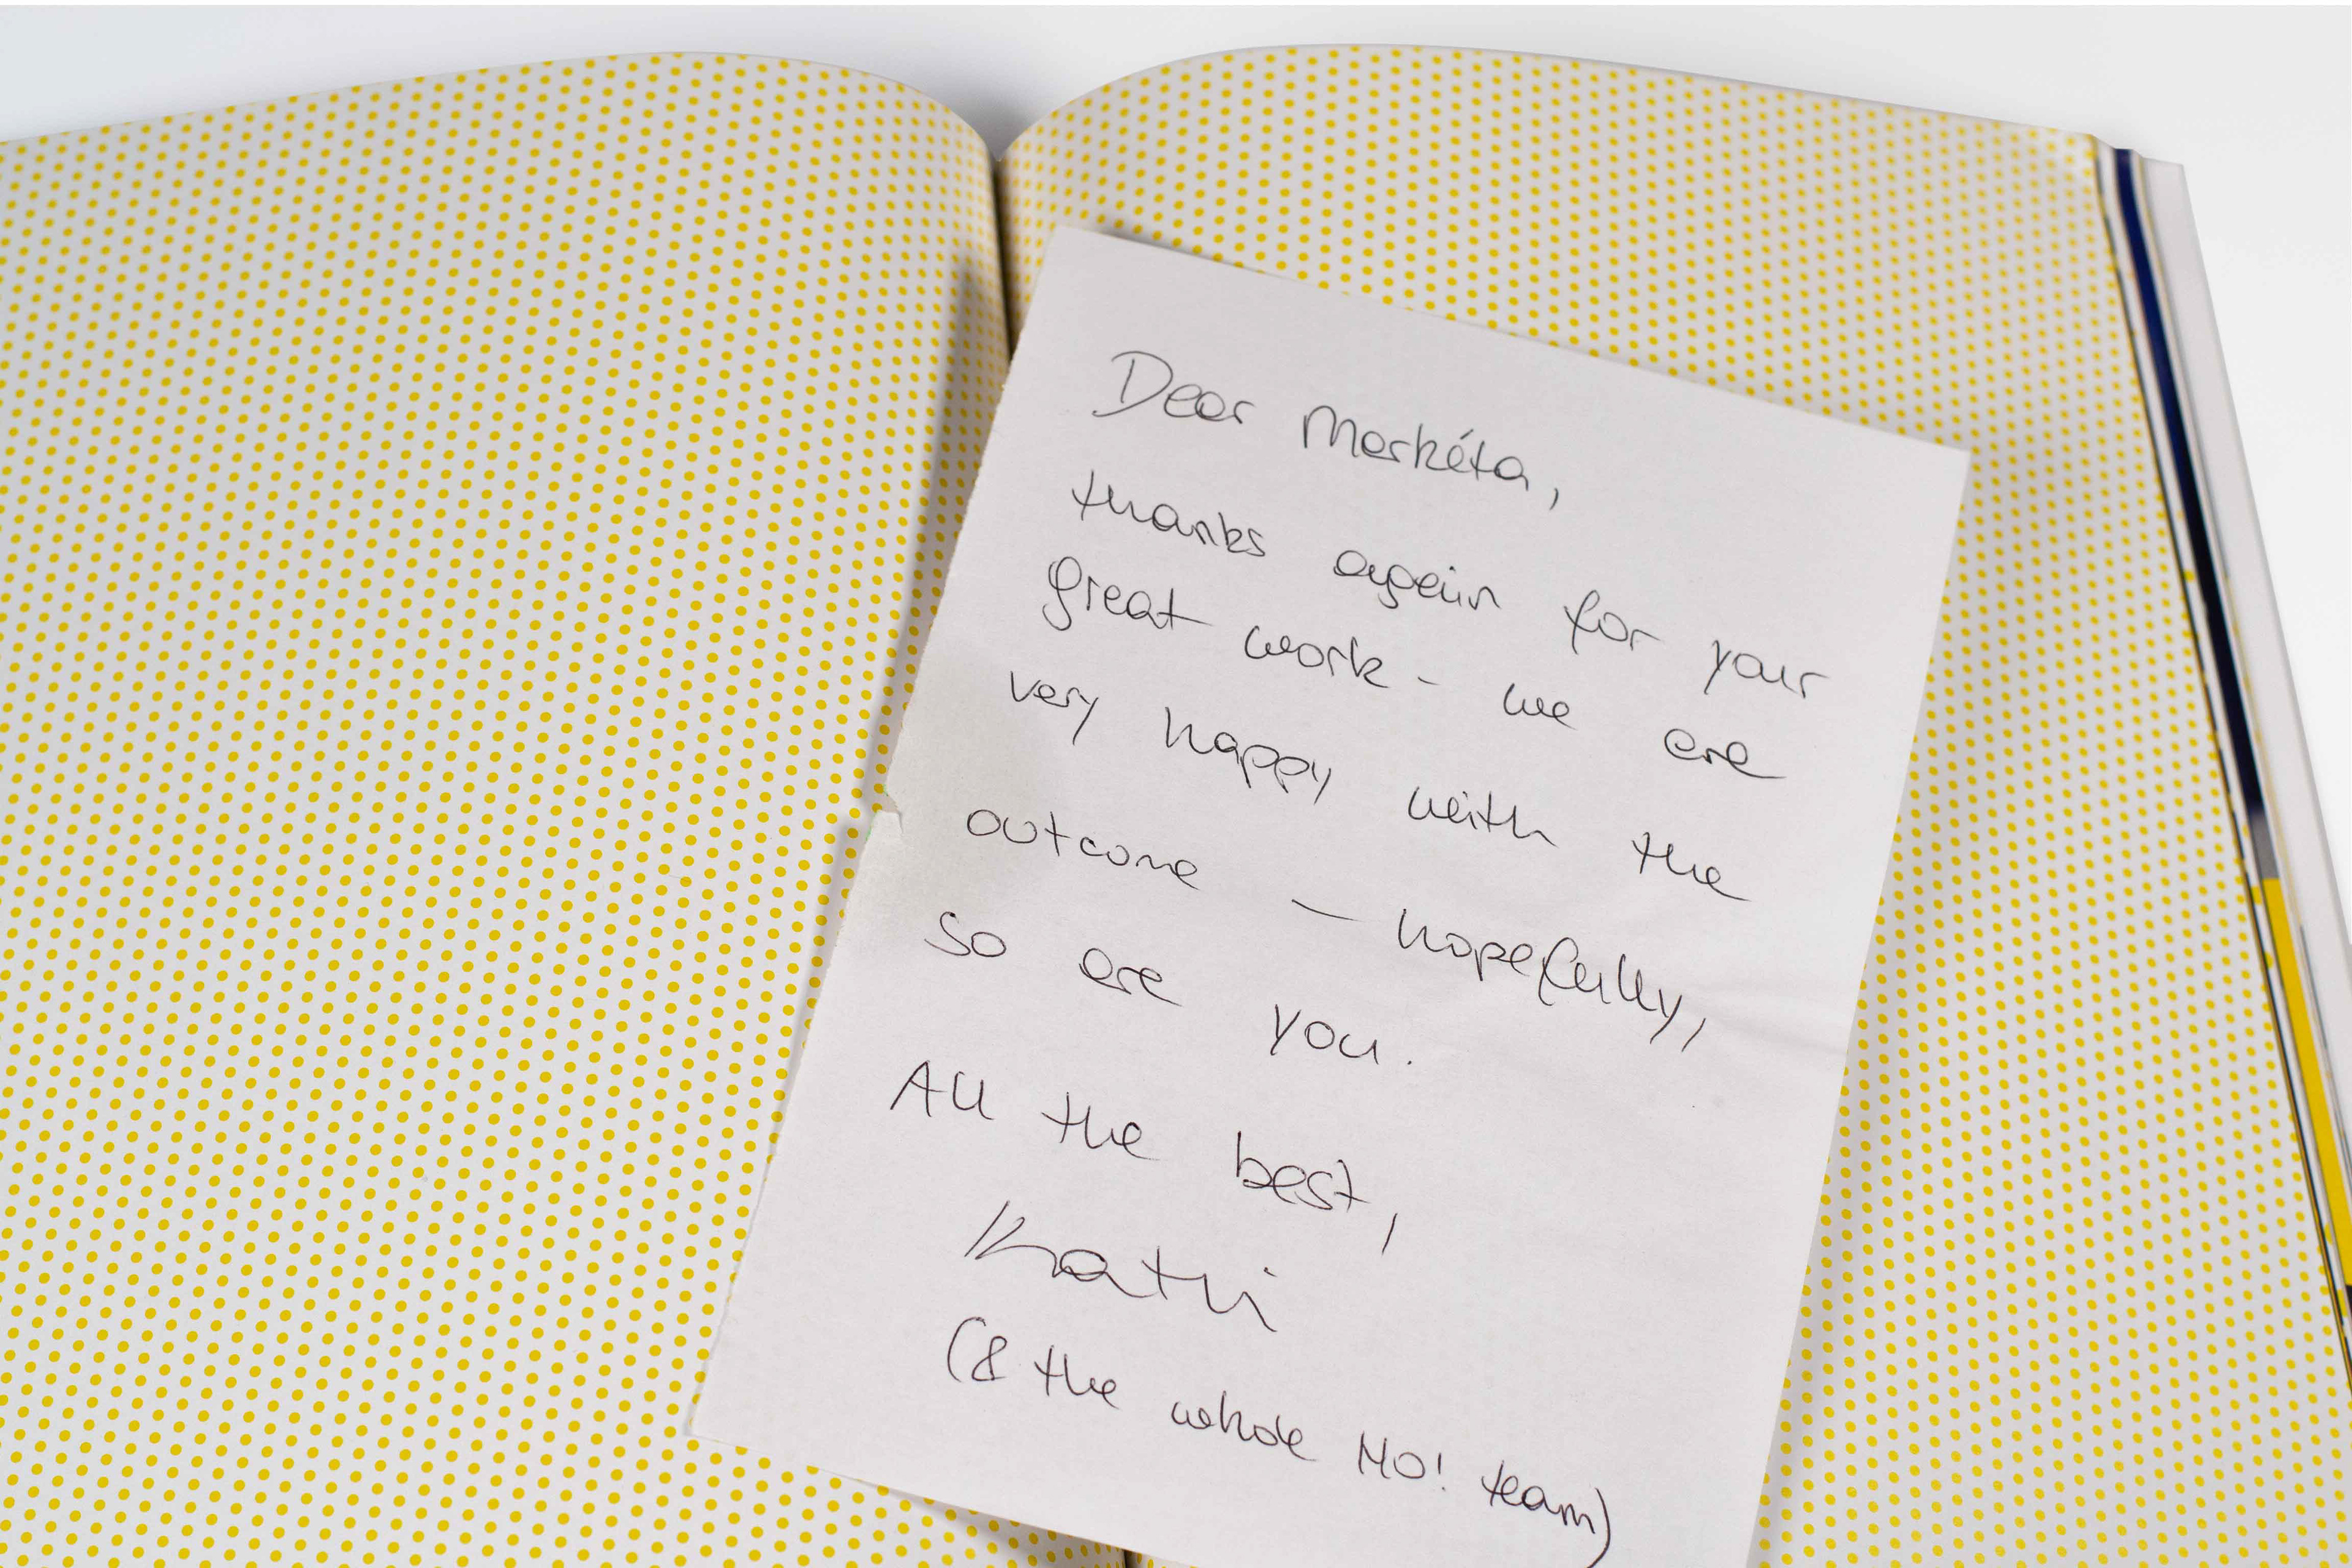 Dear Markéta,
thanks again for your
great work - we are
very happy with the
outcome – hopefully,
so are you.
All the best,
Kathi
(& the whole HO! team)